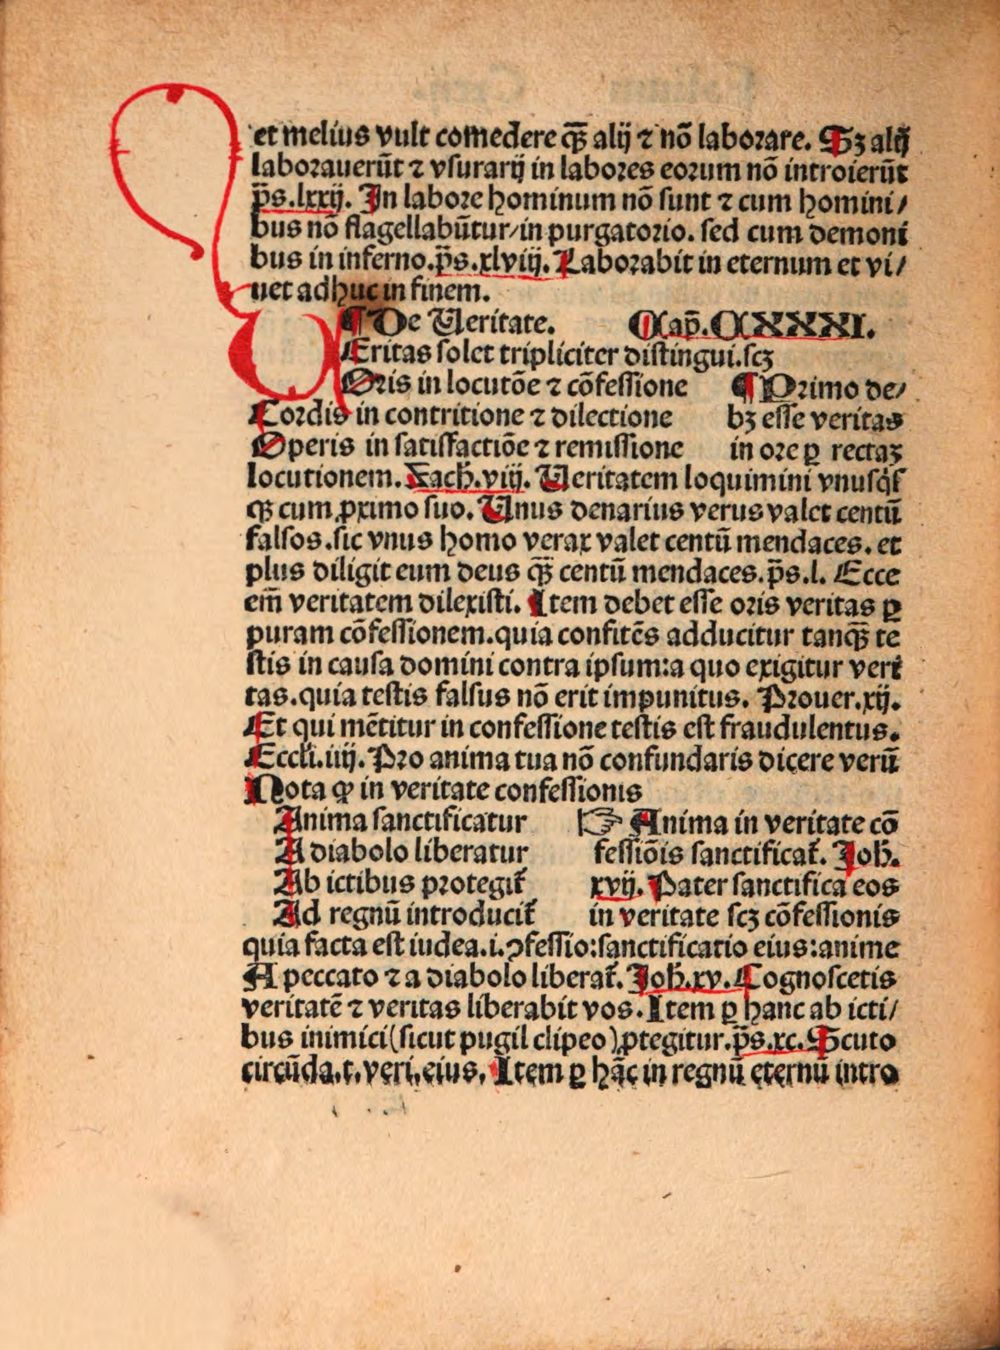 et melius vult comedere qȝ̃ alij ⁊ nõ laborare. Sȝ alij
laborauerũt ⁊ vsurarij in labores eorum nõ introierũt
p̃s.lxxij. In labore hominum nõ sunt ⁊ cum homini/
bus nõ flagellabũtur/in purgatorio. sed cum demoni
bus in inferno.p̃s.xlviij. Laborabit in eternum et vi/
uet adhuc in finem.
¶ De Ueritate. Cap̃. CXXXI.
UEritas solet tripliciter distingui.scȝ
Oris in locutõe ⁊ cõfessione ¶ Primo de/
Cordis in contritione ⁊ dilectione bȝ esse veritas
Operis in satisfactiõe ⁊ remissione in ore ꝑ rectaȝ
locutionem. Zach̃.viij. Ueritatem loquimini vnusq̃s
qȝ cum ꝓximo suo. Unus denarius verus valet centũ
falsos.sic vnus homo verax valet centũ mendaces. et
plus diligit eum deus qȝ̃ centũ mendaces.p̃s.l. Ecce
em̃ veritatem dilexisti. Item debet esse oris veritas ꝑ
puram cõfessionem.quia confitẽs adducitur tanqȝ̃ te
stis in causa domini contra ipsum:a quo exigitur veri
tas.quia testis falsus nõ erit impunitus. Prouer.xij.
Et qui mẽtitur in confessione testis est fraudulentus.
Eccli.iiij. Pro anima tua nõ confundaris dicere verũ
Nota ꝙ in veritate confessionis
Anima sanctificatur ☞ Anima in veritate cõ
A diabolo liberatur fessiõis sanctificat̃. Joh̃.
Ab ictibus protegit̃ xvij. Pater sanctifica eos
Ad regnũ introducit̃ in veritate scȝ cõfessionis
quia facta est iudea.i.ꝯfessio:sanctificatio eius:anime
A peccato ⁊ a diabolo liberat̃. Joh̃.xv. Cognoscetis
veritatẽ ⁊ veritas liberabit vos. Item ꝑ hanc ab icti/
bus inimici(sicut pugil clipeo)ꝓtegitur.p̃s.xc. Scuto
circũda.t.veri.eius. Item ꝑ hãc in regnũ eternũ intro